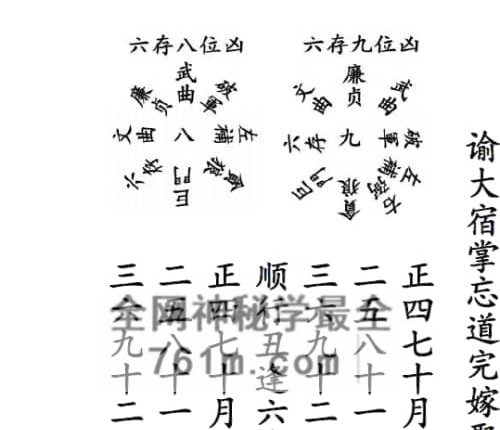 谕大宿掌忘道完嫁
六存九位凶
廉贞
武曲
破軍
左補右弼
貪狼
巨門
六存
文曲
九
六存八位凶
武曲
破軍
左補
貪狼
巨門
六存
文曲
廉贞
八
正四七十月
二五八十一
三六九十二
顺行丑逢六
正四七十月
二五八十一
三六九十二
全网神秘学最全
761m.com